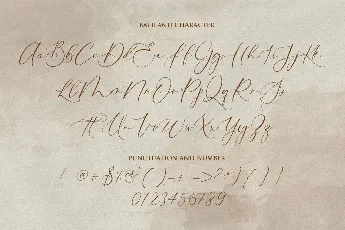 BASIC AND CHARACTER
Aa Bb Cc Dd Ee Ff Gg Hh Ii Jj Kk
Ll Mm Nn Oo Pp Qq Rr Ss
Tt Uu Vv Ww Xx Yy Zz
PUNCTUATION AND NUMBER
0123456789